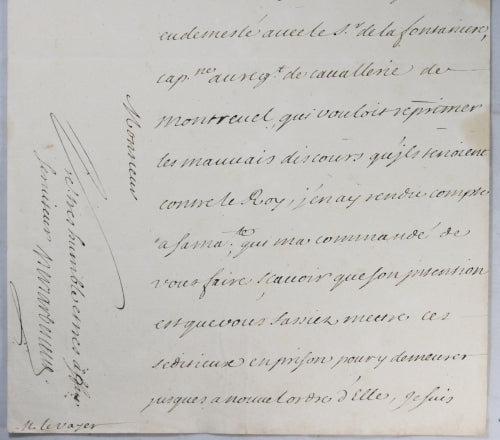 eu demeslé avec le S.r de la fontaniere,
cap.ne au reg.t de cavallerie de
montrevel, qui vouloit reprimer
les mauvais discours qu'ils tenoient
contre le Roy, j'en ay rendu compte
a sa ma.té qui m'a commandé de
vous faire scavoir que son intention
est que vous fassiez mettre ces
seditieux en prison pour y demeurer
jusques a nouvel ordre d'Elle, Je suis
Monsieur
Vostre tres humble et tres aff.né
serviteur
M. le vayer